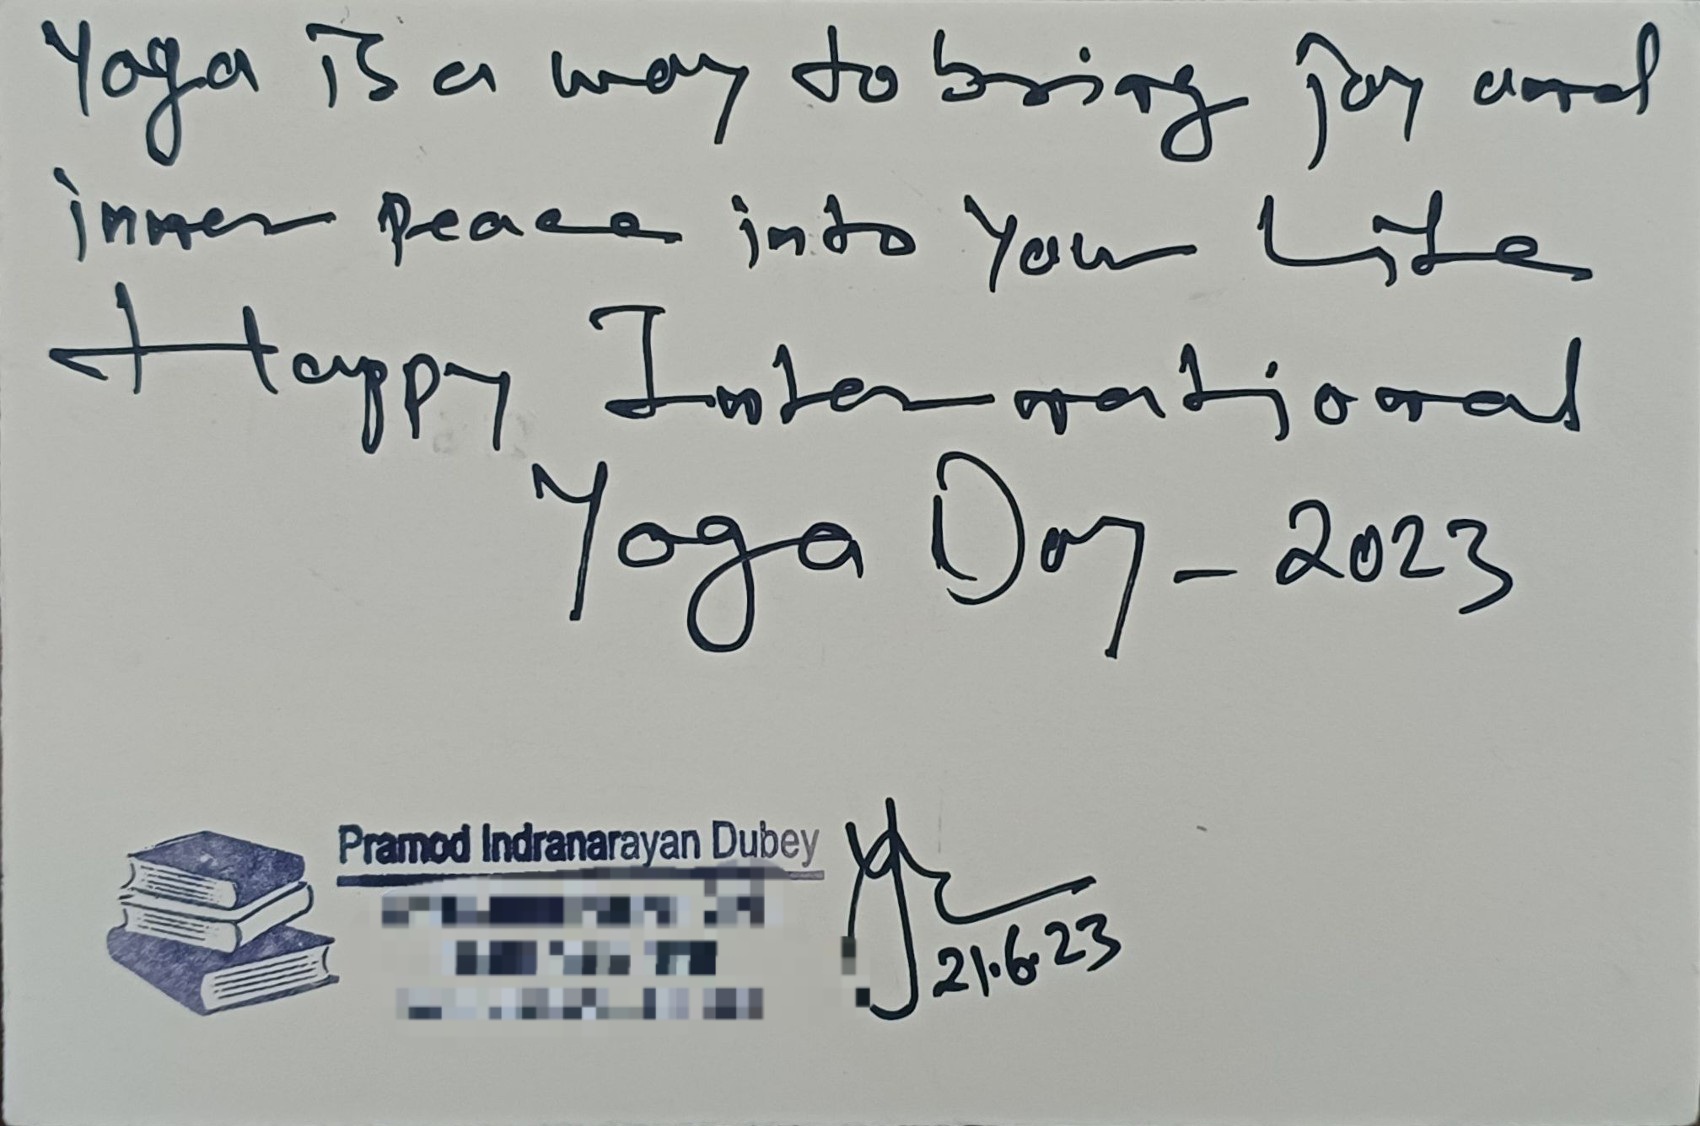 Yoga is a way to bring joy and
inner peace into your Life
Happy International
Yoga Day - 2023
Pramod Indranarayan Dubey
21.6.23